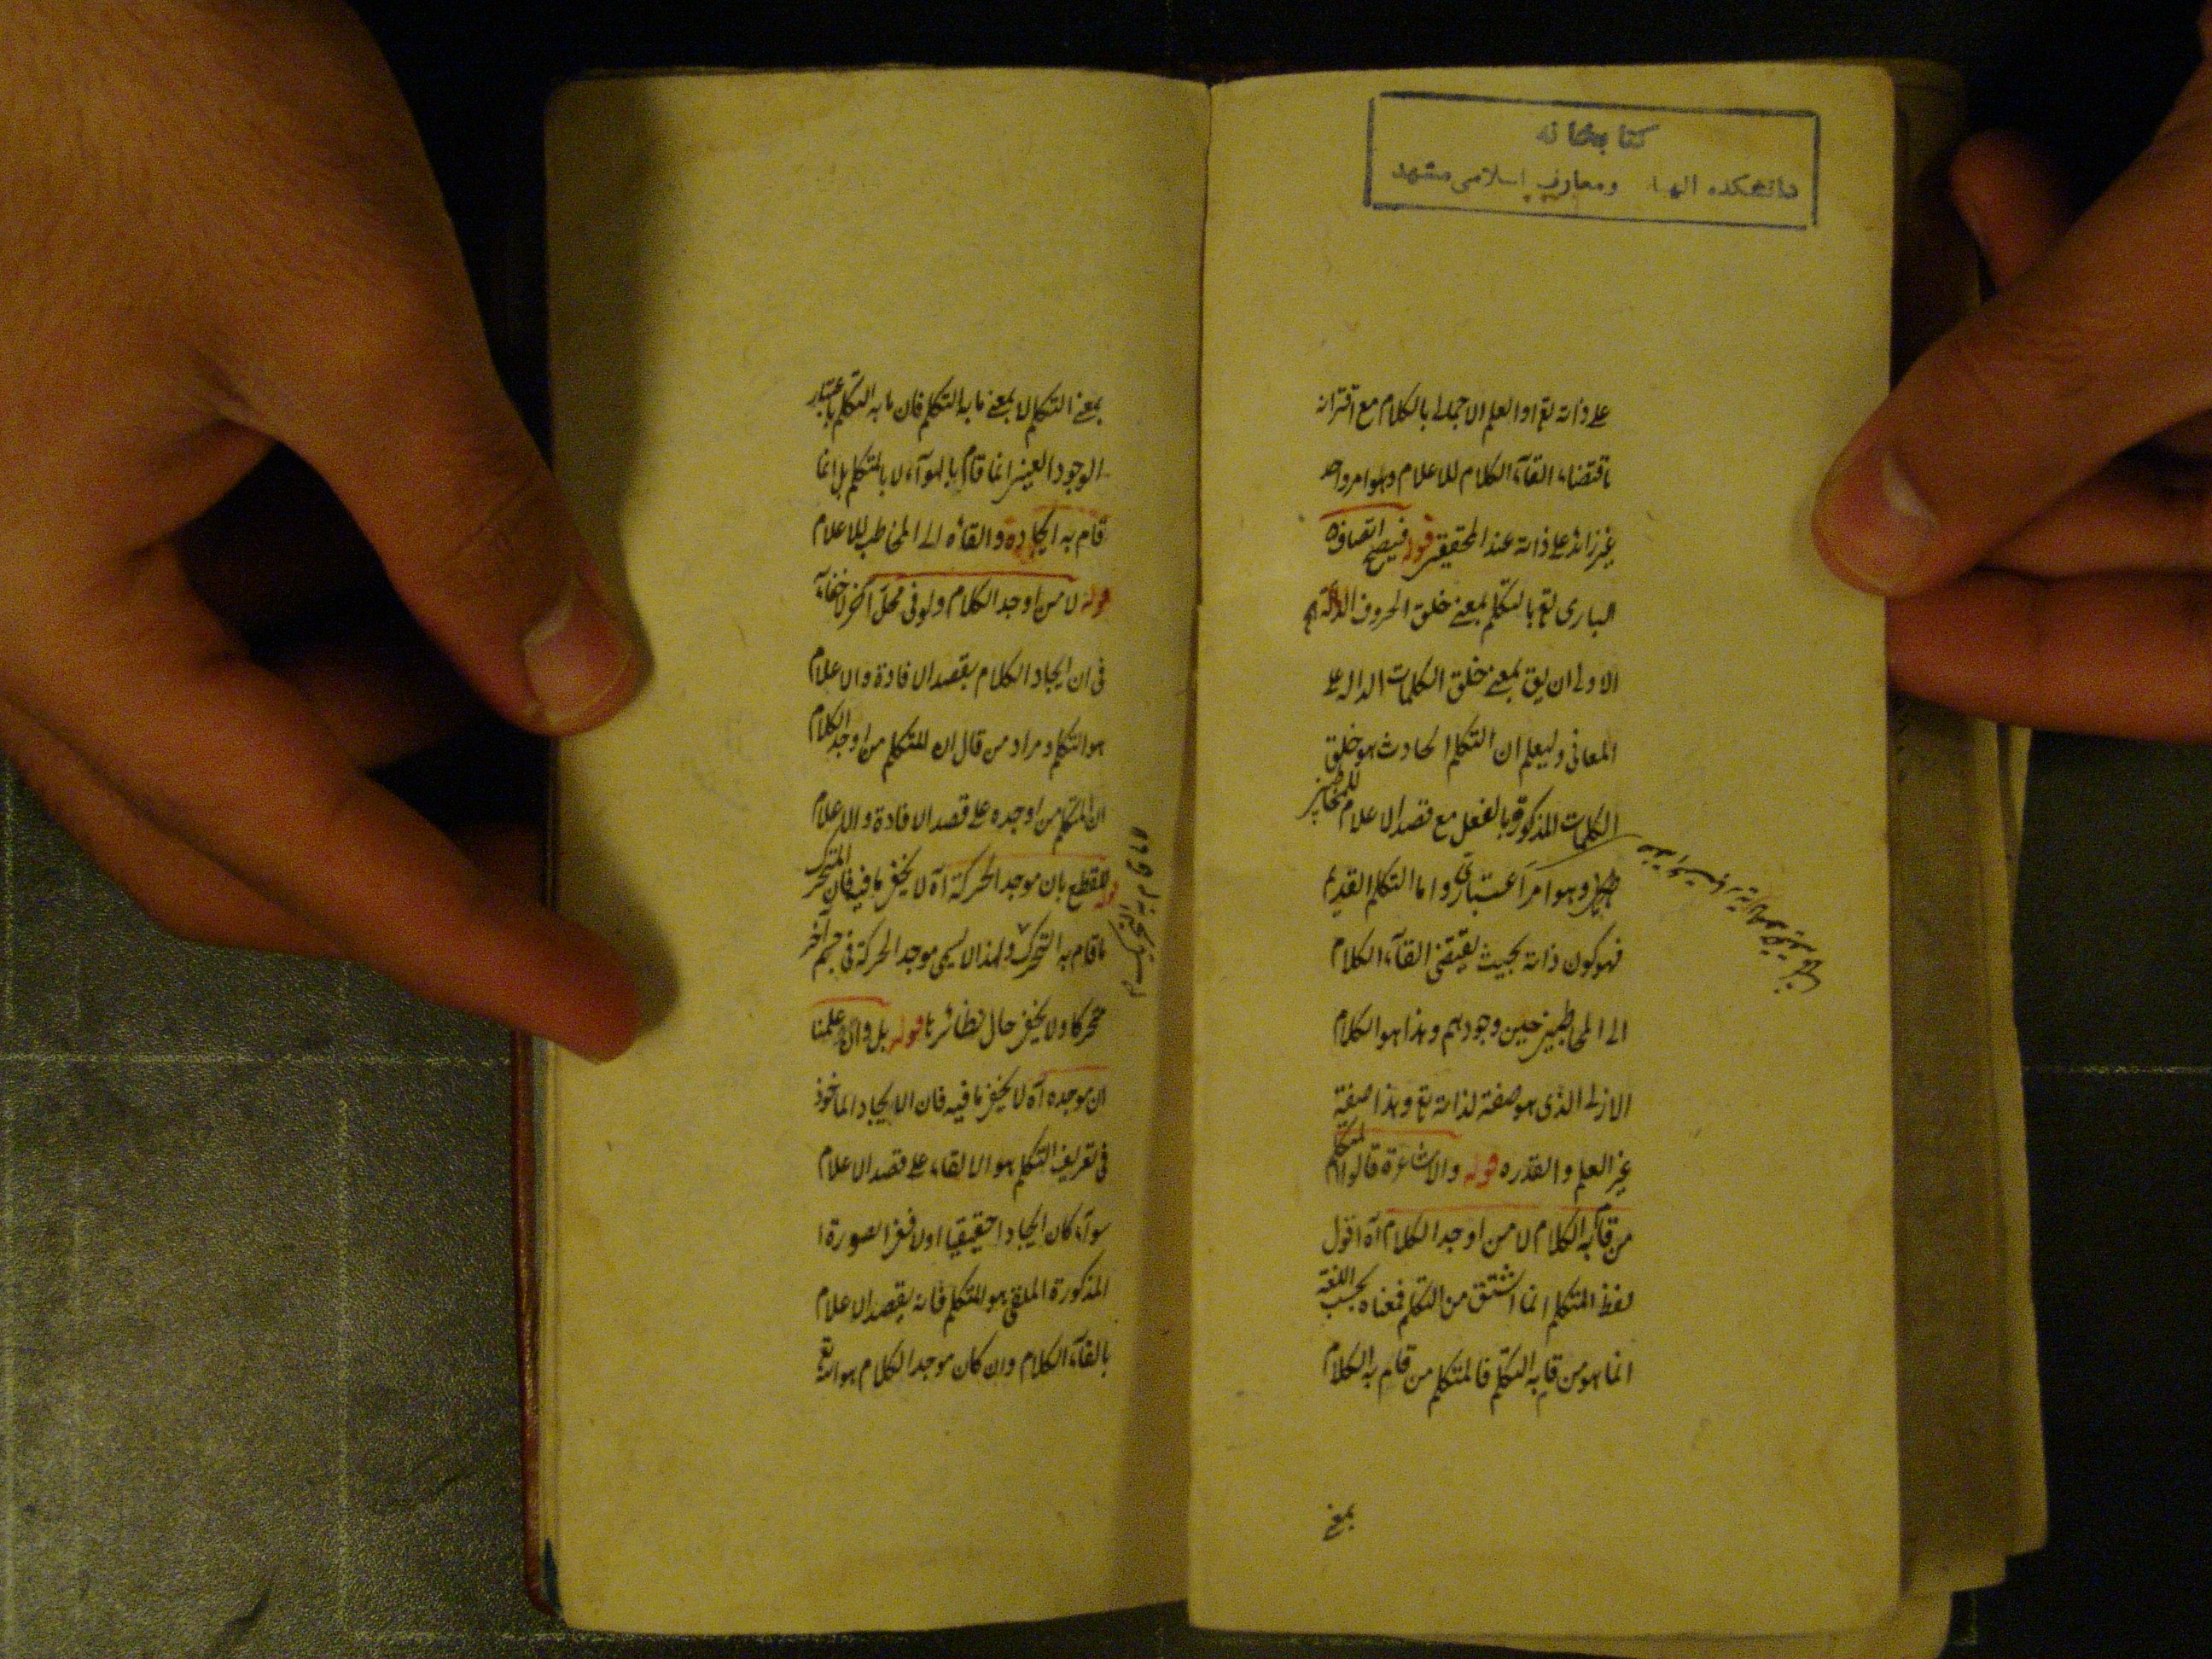 كتابخانه
دانشكده الهيا ومعارف اسلامى مشهد
على ذاته تع او العلم الاجمالى بالكلام مع اقترانه
باقتضاء القآء الكلام للاعلام وهو امر واحد
غير زائد على ذاته عند المحققين قوله فيصح اتصاف
البارى تع بالتكلم بمعنى خلق الحروف الدالة اه
الاولى ان يق بمعنى خلق الكلمات الداله على
المعانى وليعلم ان التكلم الحادث هو خلق
الكلمات المذكورة بالفعل مع قصد الاعلام للمخاطبين
وهو امر اعتبارى واما التكلم القديم
فهو كون ذاته بحيث يقتضى القآء الكلام
الى المخاطبين حين وجودهم وهذا هو الكلام
الازلى الذى هو صفة لذاته تع وهذا صفة
غير العلم والقدره قوله والاشاعرة قالوا المتكلم
من قام به الكلام لا من اوجد الكلام اه اقول
لفظ المتكلم انما اشتق من التكلم فمعناه بحسب اللغة
انما هو من قام به التكلم فالمتكلم من قام به الكلام
بمعنى
بمعنى التكلم لا بمعنى ما به التكلم فان ما به التكلم باعتبار
الوجود العينى انما قام بالهوآء لا بالمتكلم بل انما
قام به ايجاده والقاؤه الى المخاطب للاعلام
قوله لا من اوجد الكلام ولو فى محل آخر لا خفآء
فى ان ايجاد الكلام بقصد الافادة والاعلام
هو التكلم ومراد من قال ان المتكلم من اوجد الكلام
ان المتكلم من اوجده على قصد الافادة والاعلام
قوله للقطع بان موجد الحركة اه لا يخفى ما فيه فان المتحرك
ما قام به التحرك ولهذا لا يسمى موجد الحركة فى جسم آخر
متحركا ولا يخفى حال نظائرها قوله بل وان علمنا
ان موجده اه لا يخفى ما فيه فان الايجاد الماخوذ
فى تعريف التكلم هو الالقاء على قصد الاعلام
سوآء كان ايجادا حقيقيا اولا ففى الصورة
المذكورة الملقى هو المتكلم فانه يقصد الاعلام
بالقآء الكلام وان كان موجد الكلام هو الله تع